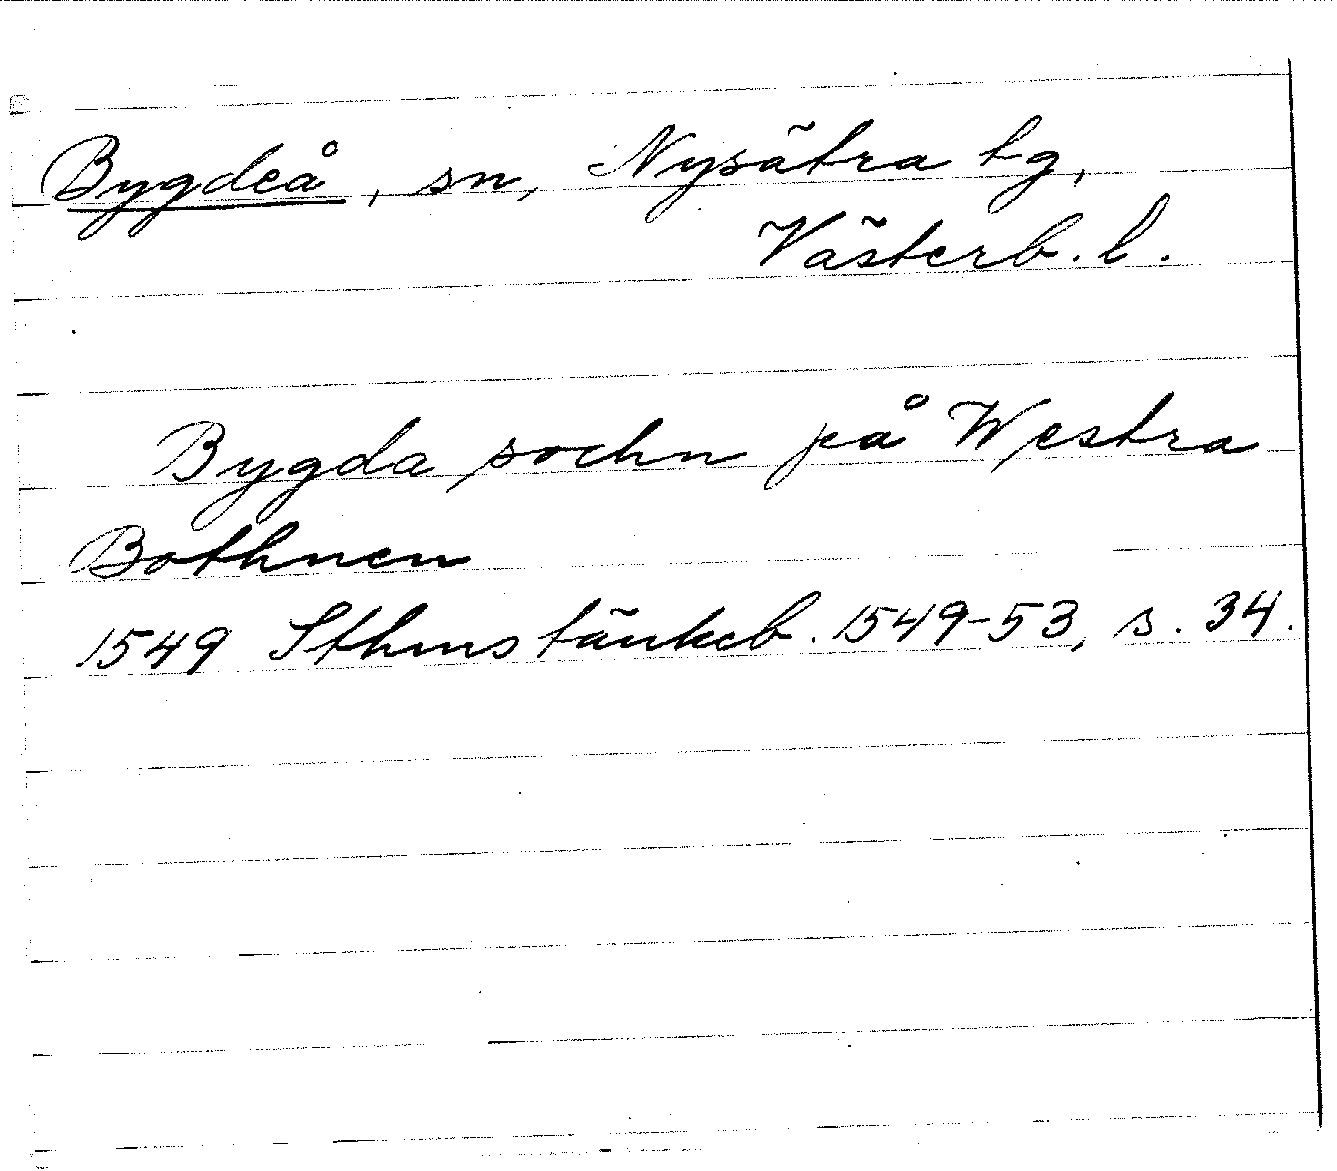 Bygdeå, sn, Nysätra tg,
Västerb. l.
Bygda sochn på Westra
Bothnen
1549 Sthms tänkeb. 1549-53, s. 34.